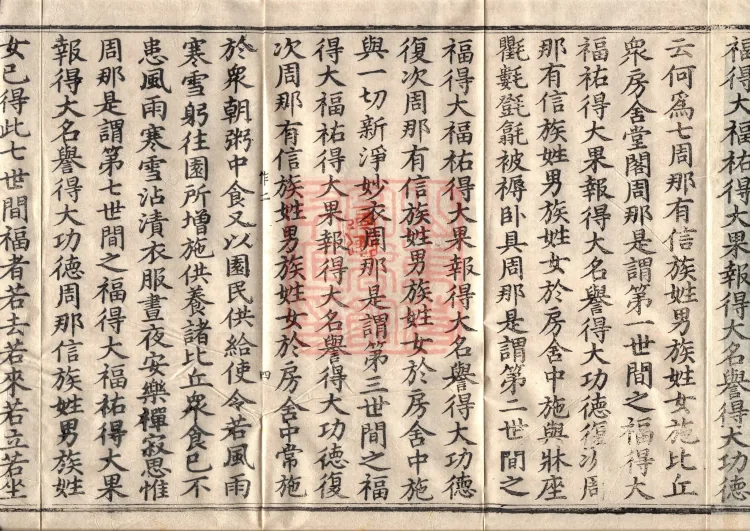 福得大福祐得大果報得大名譽得大功德
云何爲七周那有信族姓男族姓女施比丘
衆房舍堂閣周那是謂第一世間之福得大
福祐得大果報得大名譽得大功德復次周
那有信族姓男族姓女於房舍中施與牀座
氍氀㲪被褥卧具周那是謂第二世間之
福得大福祐得大果報得大名譽得大功德
復次周那有信族姓男族姓女於房舍中施
與一切新淨妙衣周那是謂第三世間之福
得大福祐得大果報得大名譽得大功德復
次周那有信族姓男族姓女於房舍中常施
作二 四
於衆朝粥中食又以園民供給使令若風雨
寒雪躬往園所增施供養諸比丘衆食已不
患風雨寒雪沾漬衣服晝夜安樂禪寂思惟
周那是謂第七世間之福得大福祐得大果
報得大名譽得大功德周那信族姓男族姓
女已得此七世間福者若去若來若立若坐